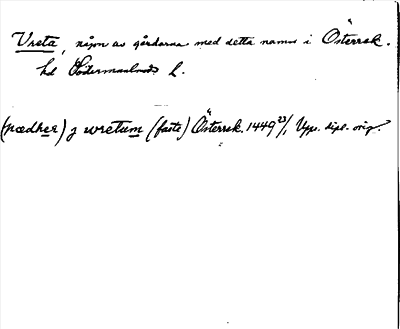 Vreta, någon av gårdarna med detta namn i Österrek.
hd Södermanlands l.
(pædher) j wretum (faste) Österrek. 1449 23/1 Upps. dipl. orig.